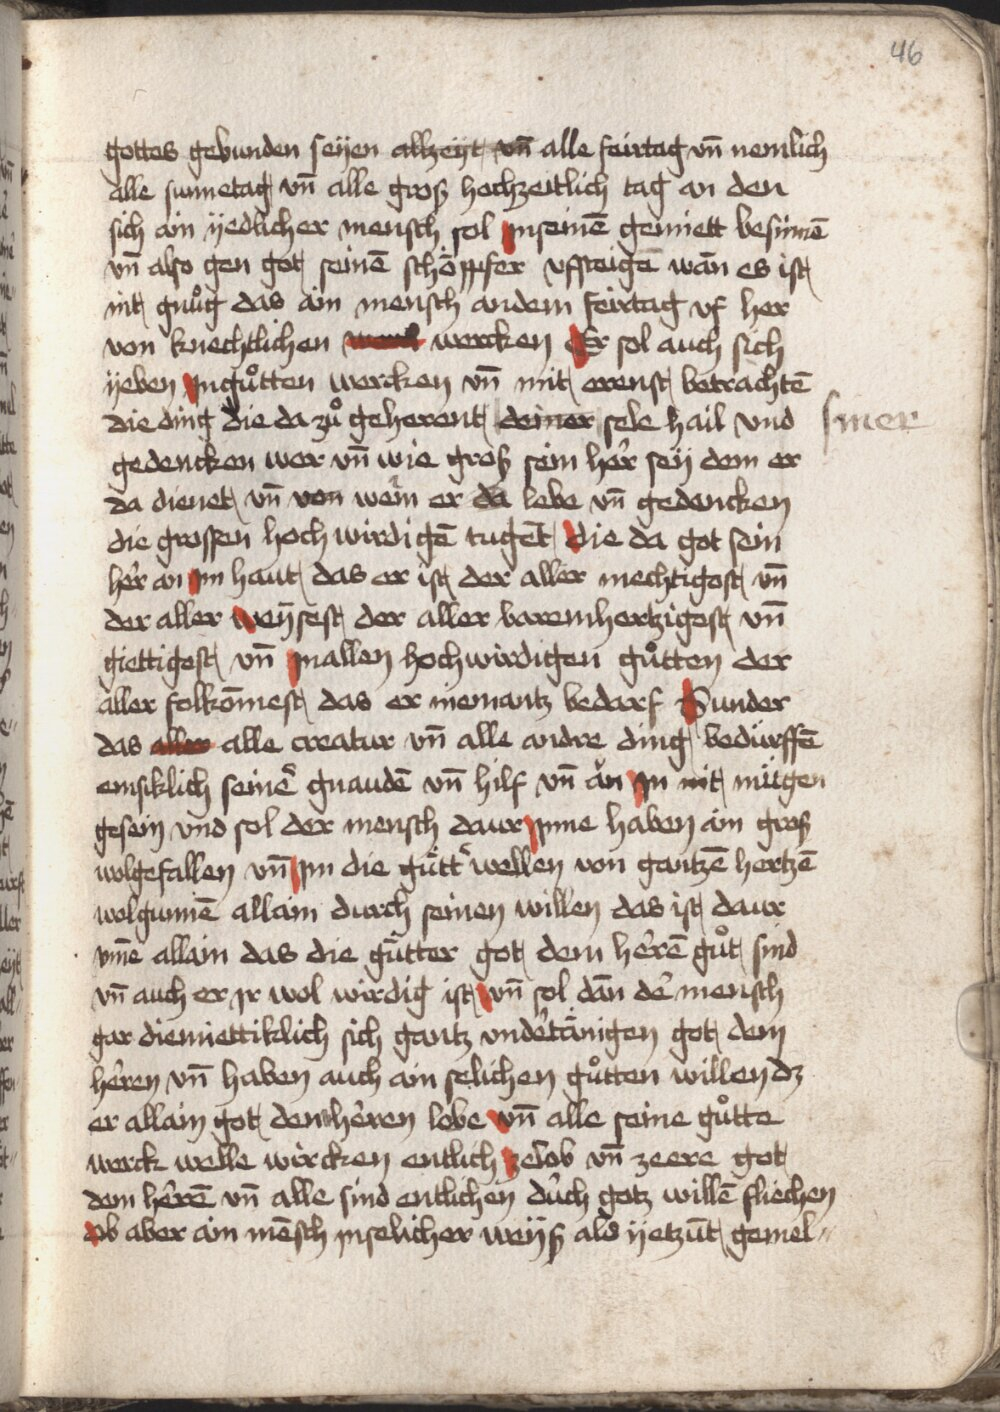 46
gottes gebunden seÿen allzeÿt vn̄ alle feirtag vn̄ nemlich
alle sunnetag vn̄ alle groß hochzeitlich tag an den
sich ain ÿedlicher mensch sol Inseinē gemiett besinnē
vn̄ also gen got seinē schöpffer vffsteigē wān es ist
nit gnůg das ain mensch andem feirtag vf her
von knechtlichen wercken Er sol auch sich
ÿeben Ingůtten wercken vn̄ mit erenst betrachtē
die ding die da zů geherent deiner sele hail vnd
siner
gedencken wer vn̄ wie groß sein hêr seÿ dem er
da dienet vn̄ von wem er da lebe vn̄ gedencken
die grossen hoch wirdigē tugēt die da got sein
hêr an Im haut das er ist der aller mechtigost vn̄
der aller weÿsest der aller baremhertzigost vn̄
giettigest vn̄ Inallen hochwirdigen gůtten der
aller folkōmest das er niemantz bedarf Sunder
das aller alle creatur vn̄ alle andre ding bedürffē
emsiklich seinêr gnaudē vn̄ hilf vn̄ ǎn In nit mügen
gesein vnd sol der mensch daur Inne haben ain groß
wolgefallen vn̄ Im die gütt wellen von gantzē hertzē
wolgunnē allain durch seinen willen das ist daur
vm̄e allain das die gütter got dem hêrē gůt sind
vn̄ auch er Ir wol wirdig ist vn̄ sol dān dê mensch
gar diemiettiklich sich gantz vndêtänigen got dem
hêren vn̄ haben auch ain selichen gůtten willen dz
er allain got dem hêren lobe vn̄ alle seine gůtte
werck welle wircken entlich zelob vn̄ zeere got
dem hêrē vn̄ alle sind entlichen dûch gotz willē fliechen
Ob aber ain mēsch Inselicher weÿß als ÿetzūt gemel//